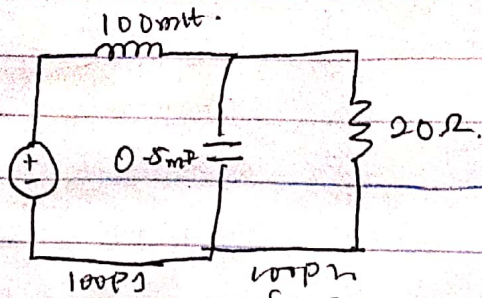 100mH.
+
-
0.5mF
20Ω.
loop 1
loop 2